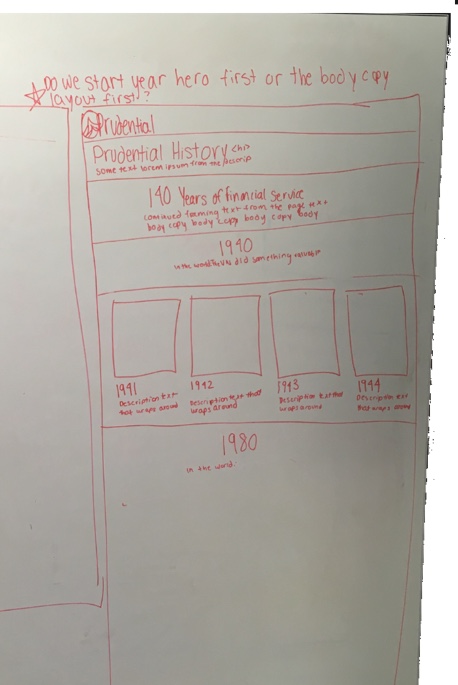 Do we start year hero first or the body copy
layout first?
Prudential
Prudential History <h1>
some text lorem ipsum from the descrip
140 Years of financial Service
continued text from the page text
body copy body copy body copy body
1940
in the world did something
1941
Description text
that wraps around
1942
Description text that
wraps around
1943
Description text that
wraps around
1944
Description text
that wraps around
1980
in the world